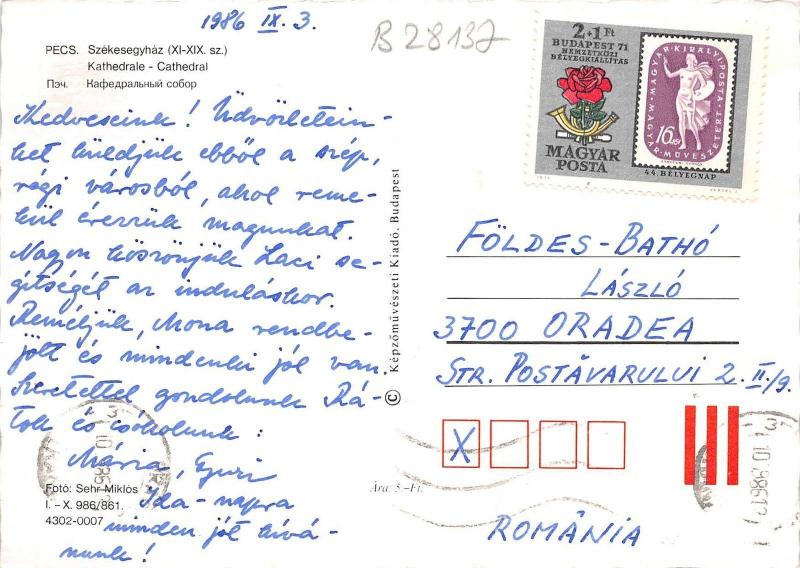 1986 IX. 3.
B 28137
PECS. Székesegyház (XI-XIX. sz.)
Kathedrale - Cathedral
Пэч. Кафедральный собор
Kedveseink! Üdvözletein-
ket küldjük ebből a szép,
régi városból, ahol reme-
kül érezzük magunkat.
Nagyon köszönjük Laci se-
gítségét az induláskor.
Reméljük, Mona rendbe-
jött és mindenki jól van.
Szeretettel gondolunk Rá-
tok és csókolunk:
Mária, Gyuri
Ida-napra
minden jót kívá-
nunk!
Fotó: Sehr Miklós
I. – X. 986/861.
4302-0007
© Képzőművészeti Kiadó, Budapest
Ára: 5.-Ft.
2+1 Ft
BUDAPEST 71
NEMZETKÖZI
BÉLYEGKIÁLLÍTÁS
MAGYAR
POSTA
MAGYAR·KIRÁLYI·POSTA
MAGYAR·MŰVÉSZETÉRT
16
44. BÉLYEGNAP
FÖLDES-BATHÓ
LÁSZLÓ
3700 ORADEA
STR. POSTĂVARULUI 2. II./9.
X
ROMÂNIA